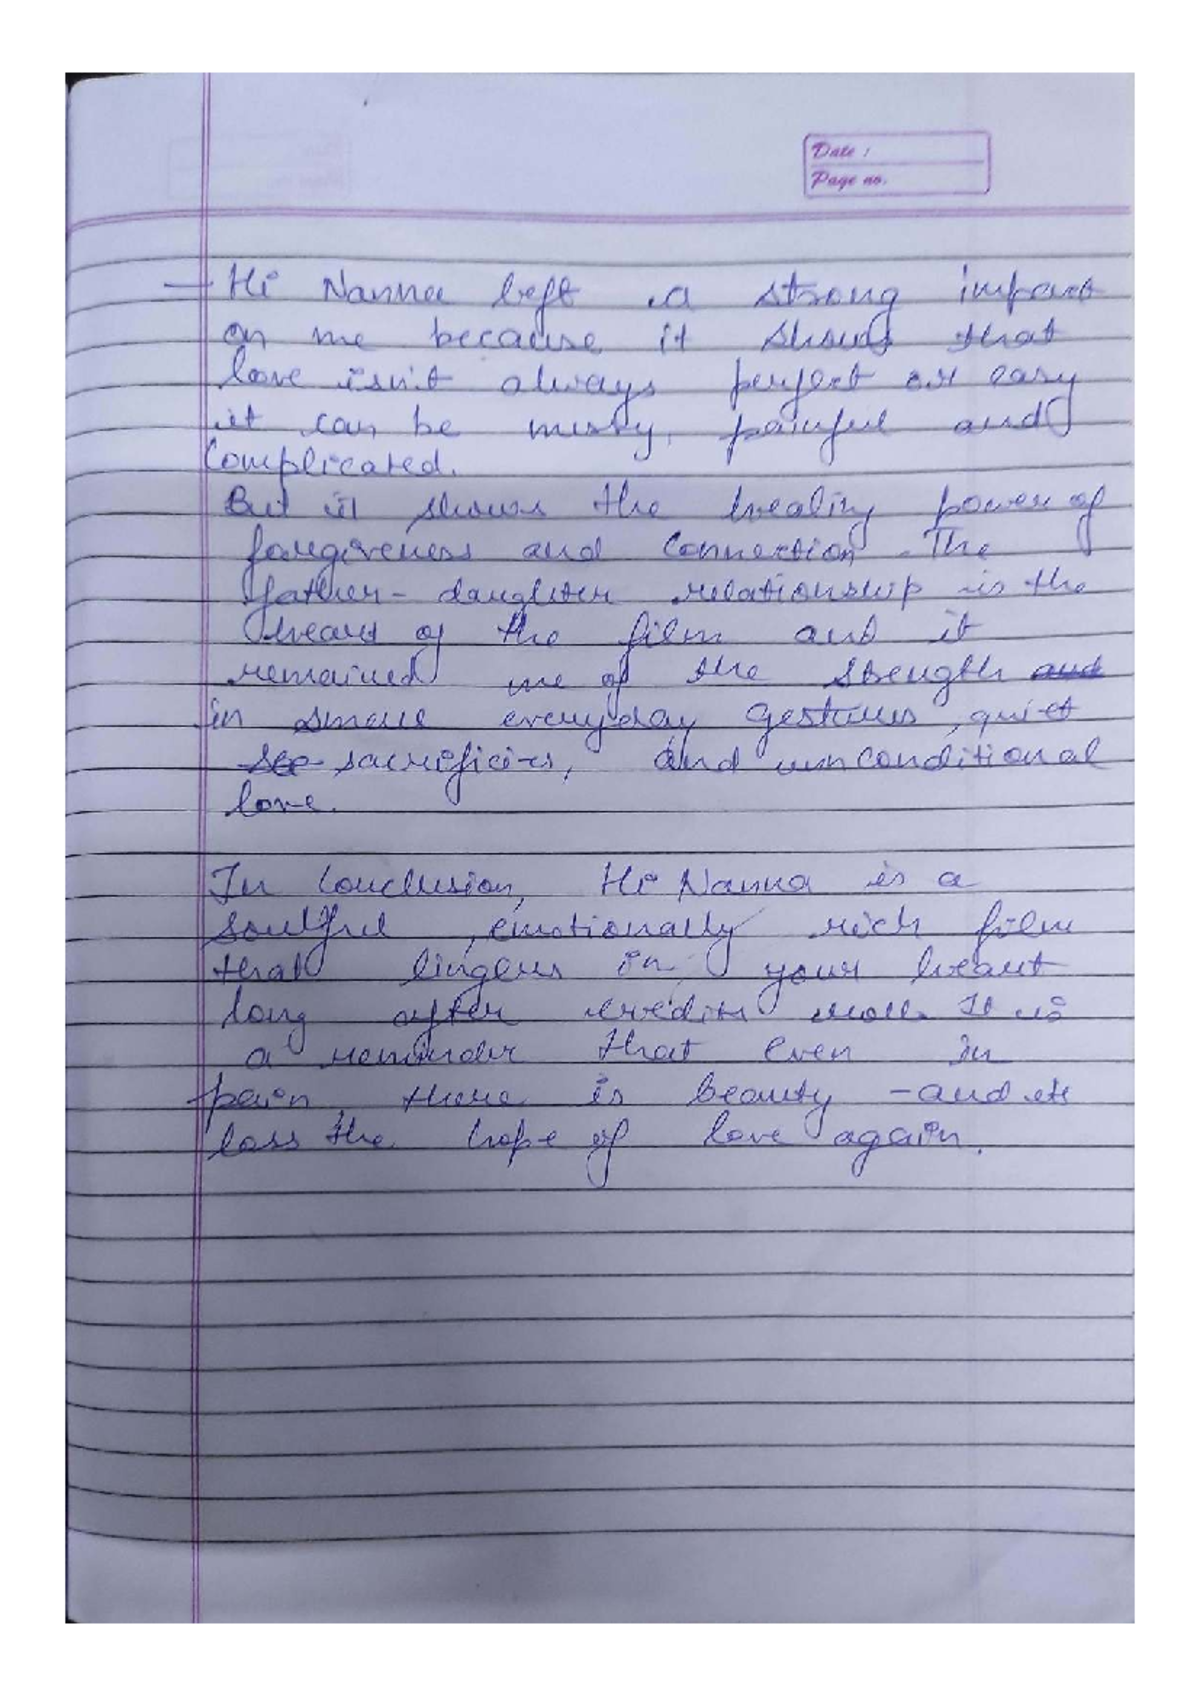 Date :
Page no.
- Hi Nanna left a strong impact
on me because it shows that
love isn't always perfect or easy
it can be messy, painful and
complicated.
But it shows the healing power of
forgiveness and connection. The
father-daughter relationship is the
heart of the film and it
remained me of the strength and
in small everyday gestures, quiet
sacrificies, and unconditional
love.
In conclusion, Hi Nanna is a
soulful, emotionally rich film
that lingers in your heart
long after credits roll. It is
a reminder that even in
pain, there is beauty - and
loss the hope of love again.